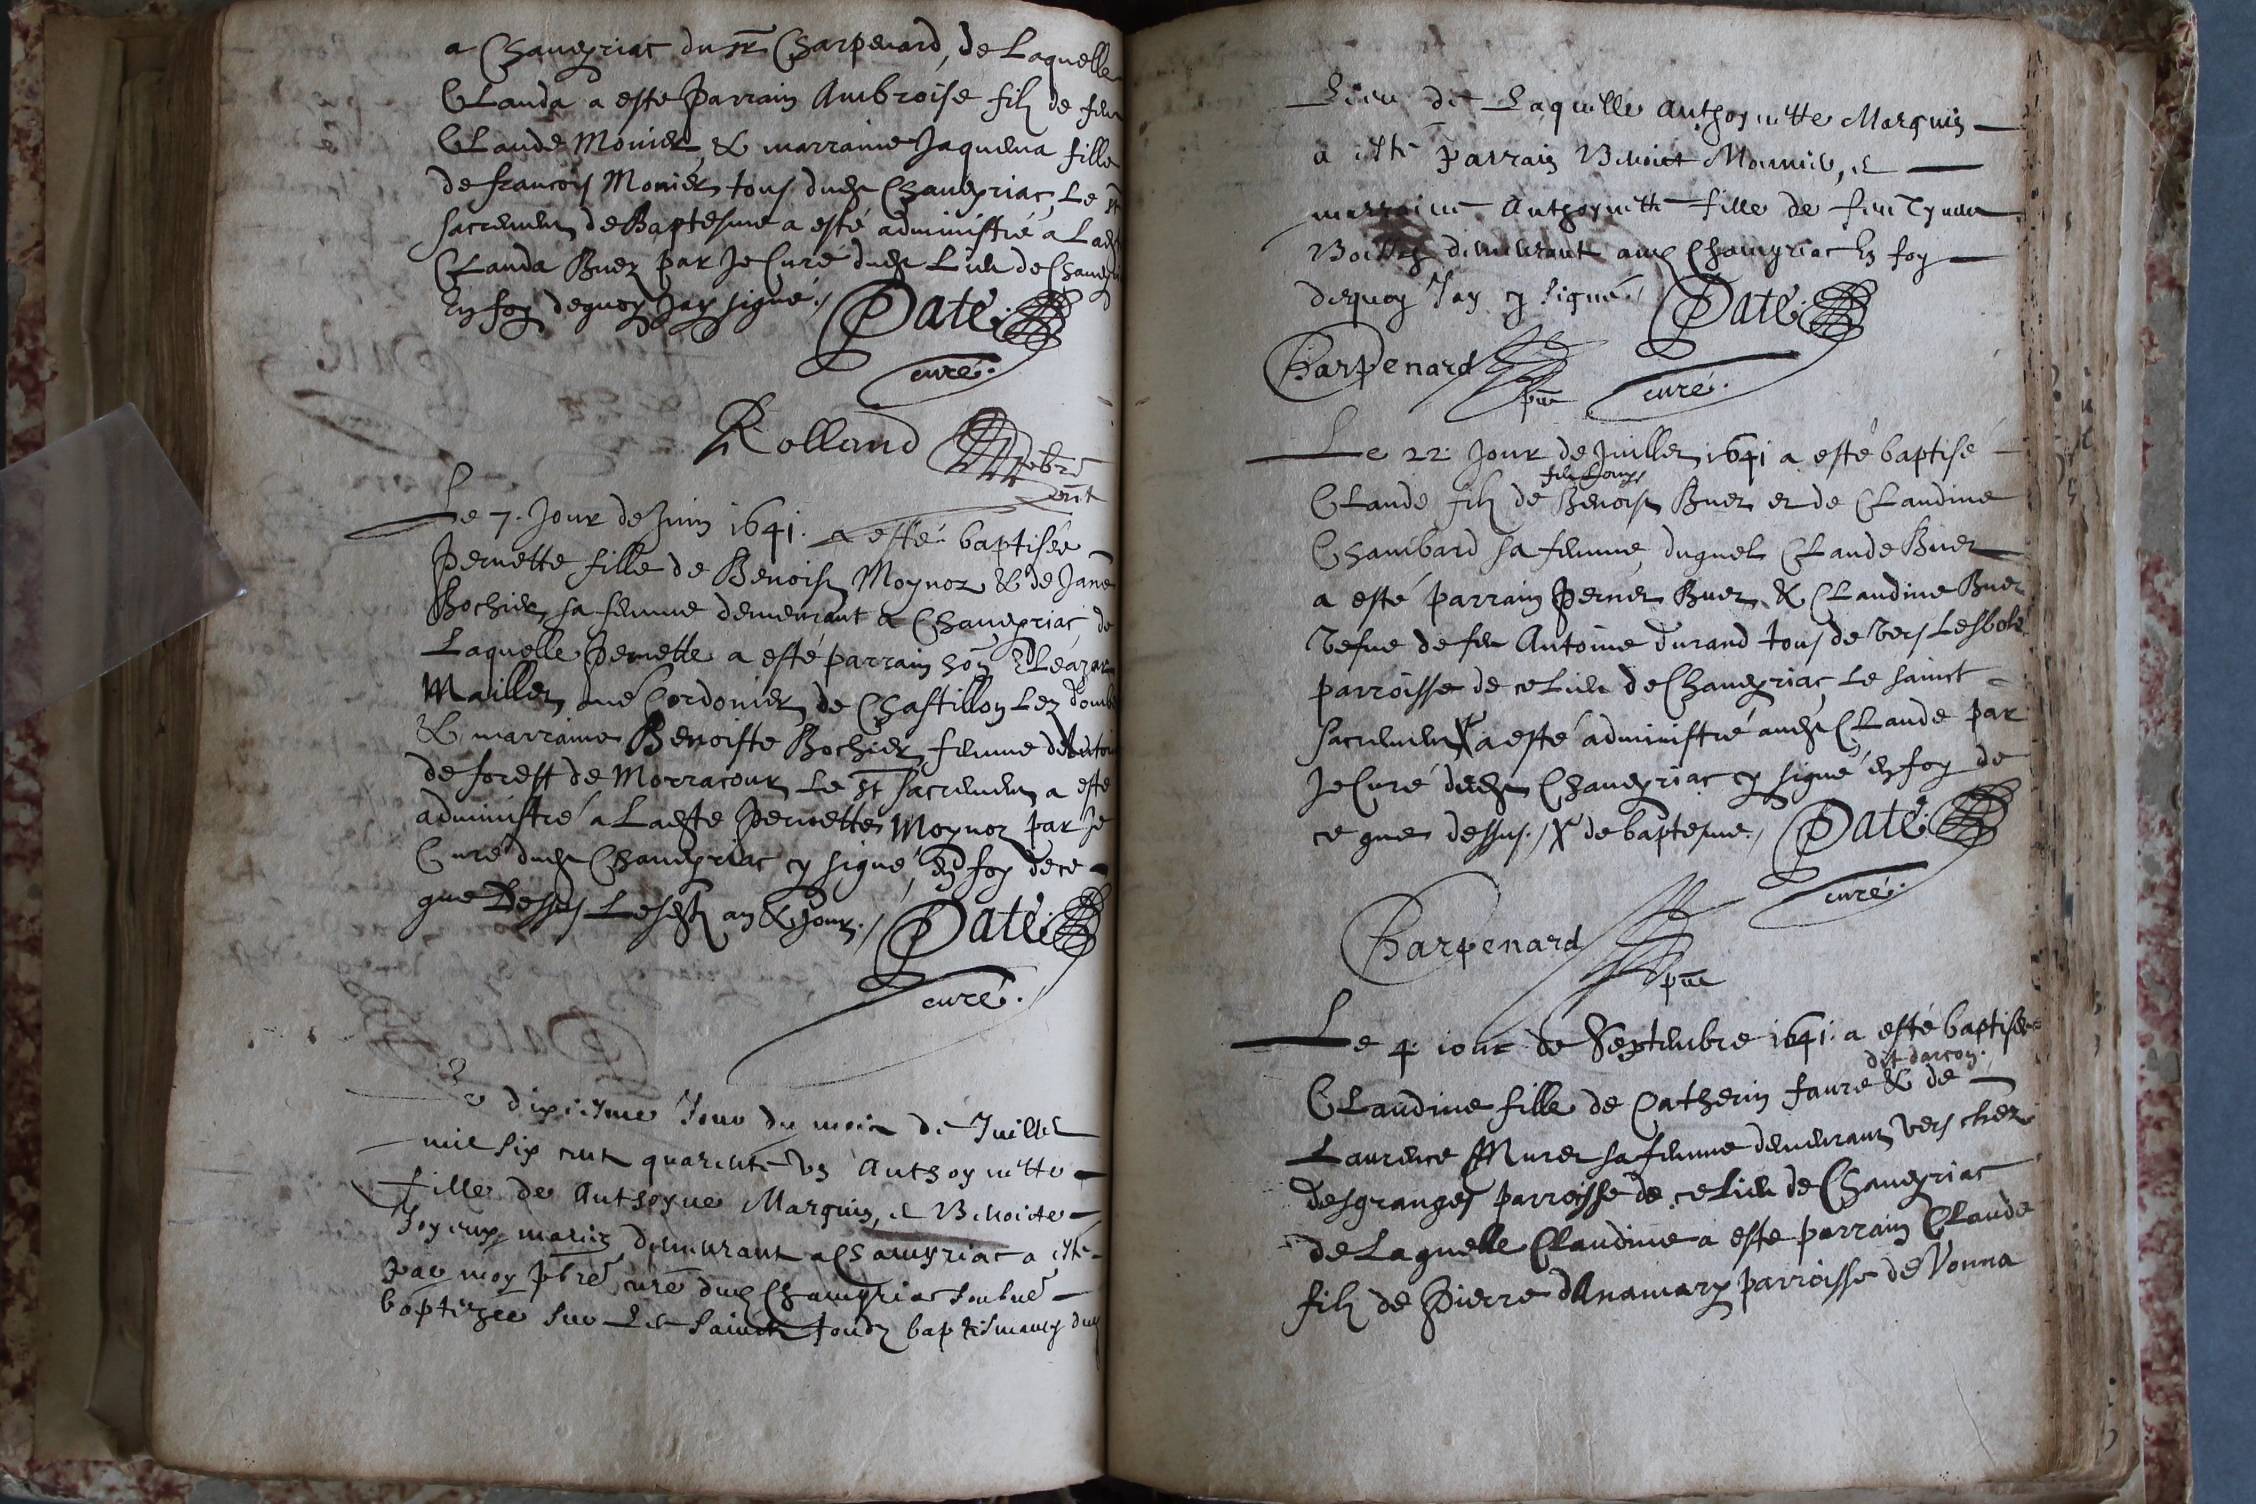 a Chaveyriac du sr Charpenard, de Laquelle
Clauda a esté parrain Ambroise filz de feu
Claude Monier, & marraine Jaquema fille
de francois Monier tous dudt Chaveyriac, Le st
sacrement de Baptesme a esté administré a Ladt
Clauda Buez par Je Curé dudt Lieu de Chavey
En foy dequoy Jay signé./ Daté
curé.
Rolland pbre
Le 7. Jour de Juin 1641. a esté baptisée
Pernette fille de Benoist Moynoz & de Jane
Bochier sa femme demeurant a Chaveyriac, de
Laquelle Pernette a esté parrain hon Eleazar
Maillet me Cordonier de Chastillon Lez domb
& marraine Benoiste Bochier femme dAntoi
de forest de Morracour Le st sacrement a esté
administré a Ladte Pernette Moynoz par Je
Curé dudt Chaveyriac cy signé, En foy de ce
que Dessus Lesdt an & Jour./ Daté
curé.
Le dixiesme Jour du mois de Juillet
mil six cent quarente un Anthoynette
fille de Anthoyne Marguin, et Benoite
Joyeux mariez, demeurant a Chaveyriac a esté
par moy pbre curé dud Chaveyriac soubné
baptizee sur Les saincts fondz baptismaux dud
Lieu de Laquelle Anthoynette Marguin
a esté parrain Benoict Monnier, et
marraine Anthoynette fille de feu
demeurant aud Chaveyriac En foy
dequoy Jay cy signé./ Daté
Charpenard pnt curé.
Le 22. Jour de Juillet 1641 a esté baptisé
filz Louys
Claude filz de Benoist Buez et de Claudine
Chambard sa femme, duquel Claude Buez
a esté parrain Pernet Buez & Claudine Buez
Vefve de feu Antoine Durand tous de Vers Lesbolé
parroisse de ce Lieu de Chaveyriac, Le sainct
sacrement X a esté administré audt Claude par
Je Curé dudt Chaveyriac cy signé en foy de
ce que dessus./ X de baptesme./ Daté
curé.
Charpenard
pnt
Le 4. iour de Septembre 1641. a esté baptisée
dit darcon.
Claudine fille de Catherin faure & de
Laurence Muret sa femme demeurant vers chez
desgranges parroisse de ce Lieu de Chaveyriac
de Laquelle Claudine a esté parrain Claude
filz de Pierre dAnamary parroisse de Vonna